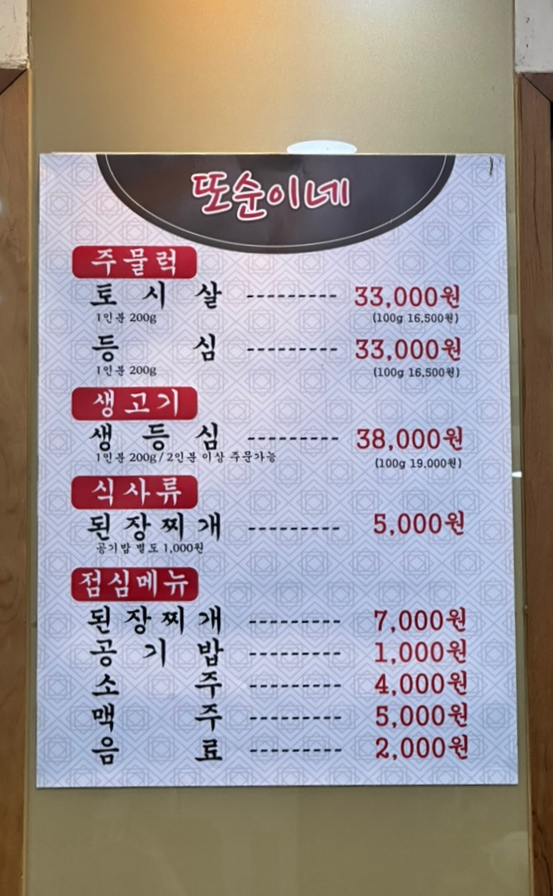 또순이네
주물럭
토시살 --------- 33,000원
1인분 200g (100g 16,500원)
등심 --------- 33,000원
1인분 200g (100g 16,500원)
생고기
생등심 --------- 38,000원
1인분 200g / 2인분 이상 주문가능 (100g 19,000원)
식사류
된장찌개 --------- 5,000원
공기밥 별도 1,000원
점심메뉴
된장찌개 --------- 7,000원
공기밥 --------- 1,000원
소주 --------- 4,000원
맥주 --------- 5,000원
음료 --------- 2,000원